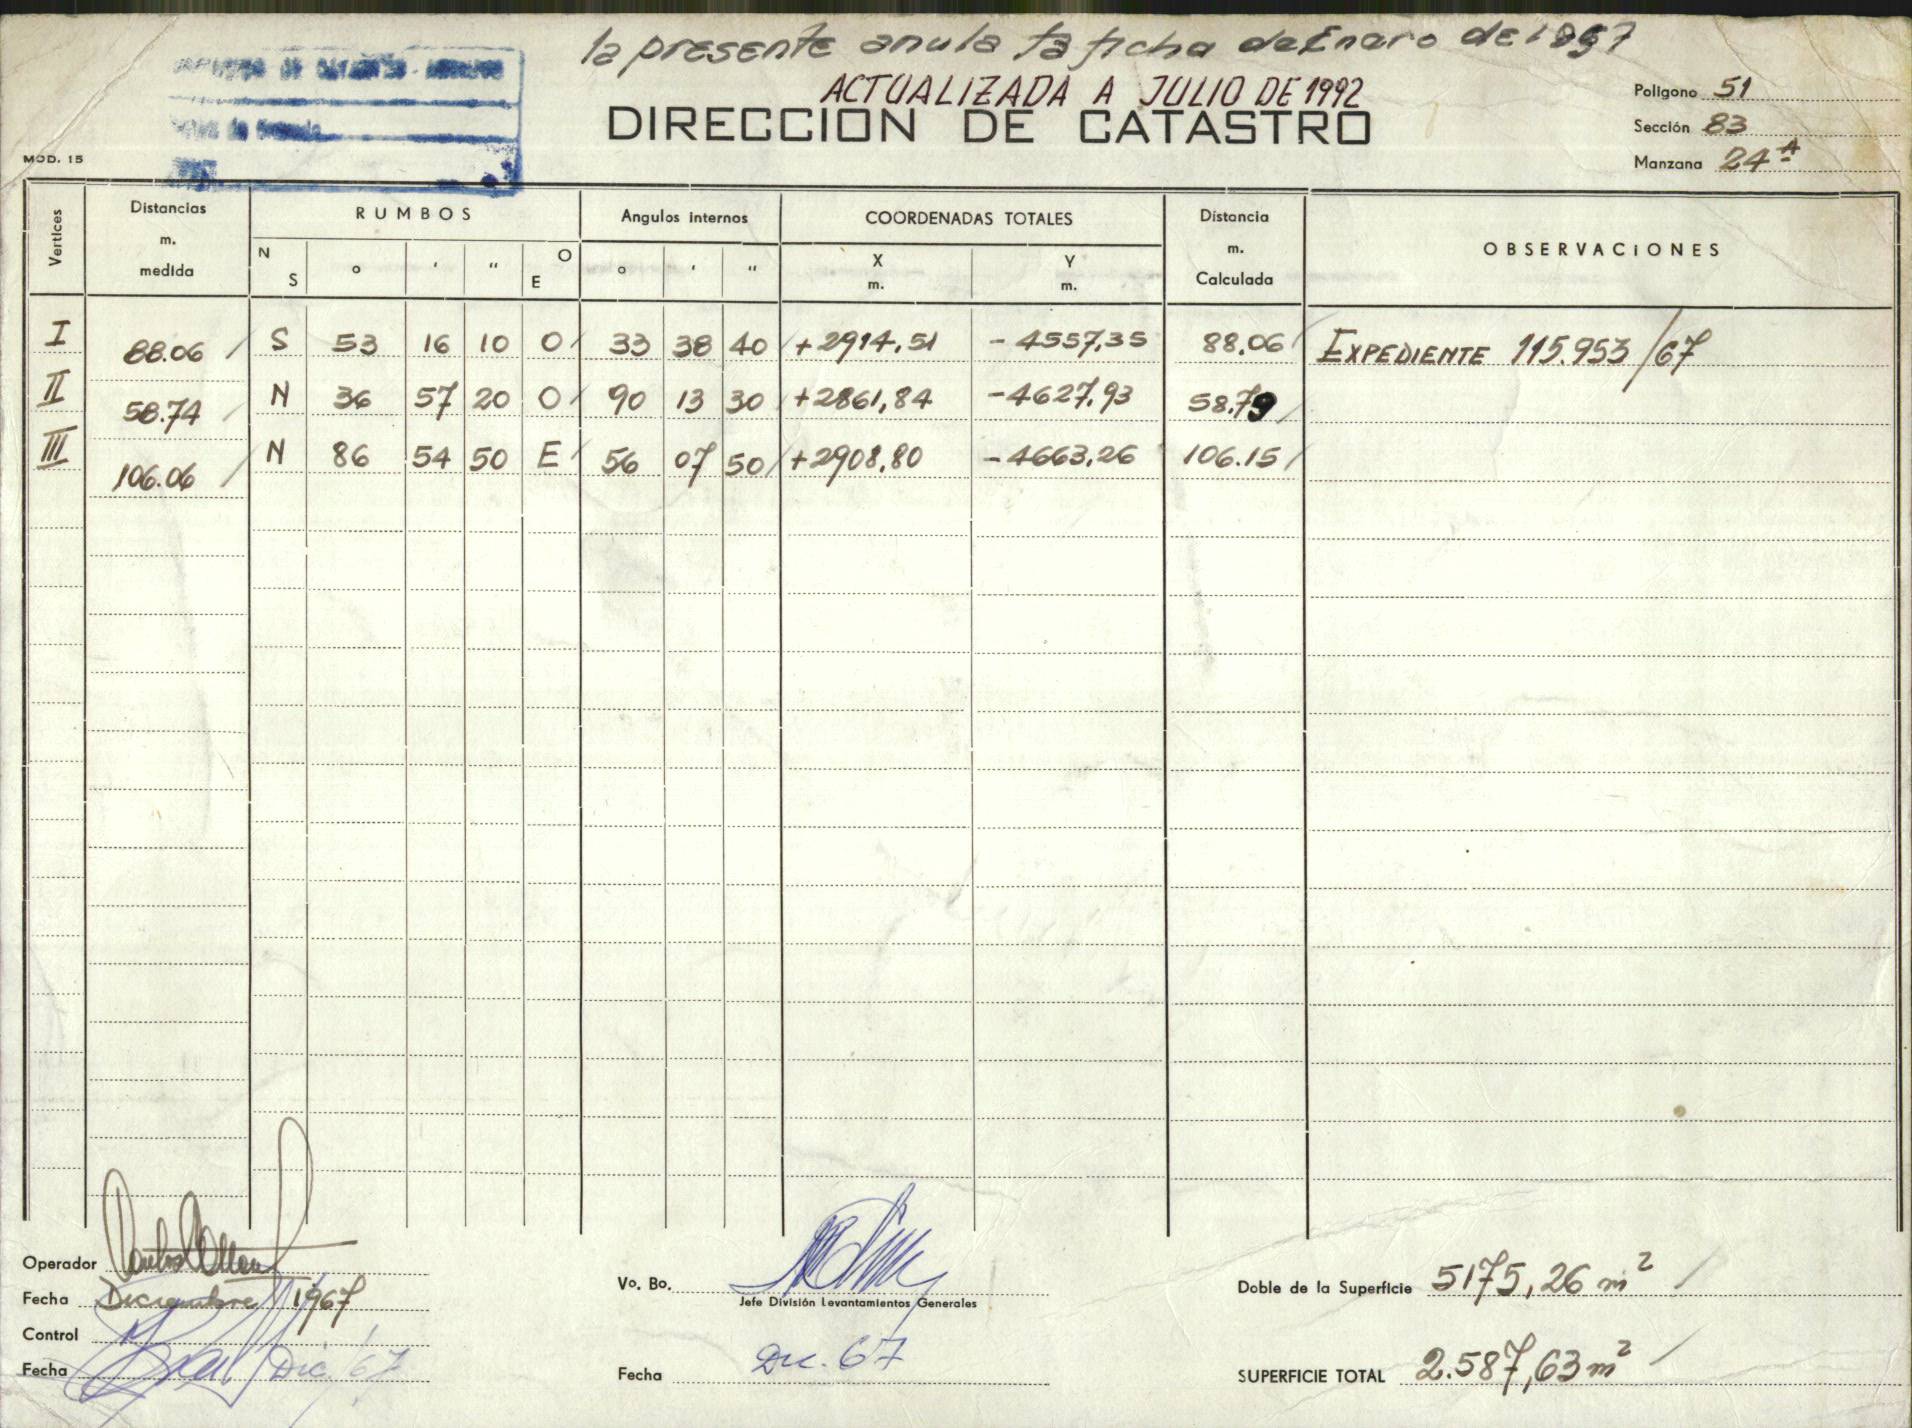 la presente anula la ficha de Enero de 1967
ACTUALIZADA A JULIO DE 1992
DIRECCION DE CATASTRO
MOD. 15
Polígono 51
Sección 83
Manzana 24ª
Vertices Distancias m. medida RUMBOS Angulos internos COORDENADAS TOTALES Distancia m. Calculada OBSERVACIONES
N S ° ' " O E ° ' " X m. Y m.
I 88.06 S 53 16 10 O 33 38 40 +2914,51 -4557,35 88.06 EXPEDIENTE 115.953/67
II 58.74 N 36 57 20 O 90 13 30 +2861,84 -4627,93 58.79
III 106.06 N 86 54 50 E 56 07 50 +2908,80 -4663,26 106.15
Operador
Fecha Diciembre 1967
Control
Fecha Dic. 67
Vo. Bo.
Jefe División Levantamientos Generales
Fecha Dic. 67
Doble de la Superficie 5175,26 m²
SUPERFICIE TOTAL 2.587,63 m²